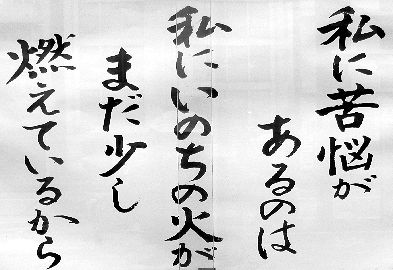 私に苦悩が
あるのは
私にいのちの火が
まだ少し
燃えているから